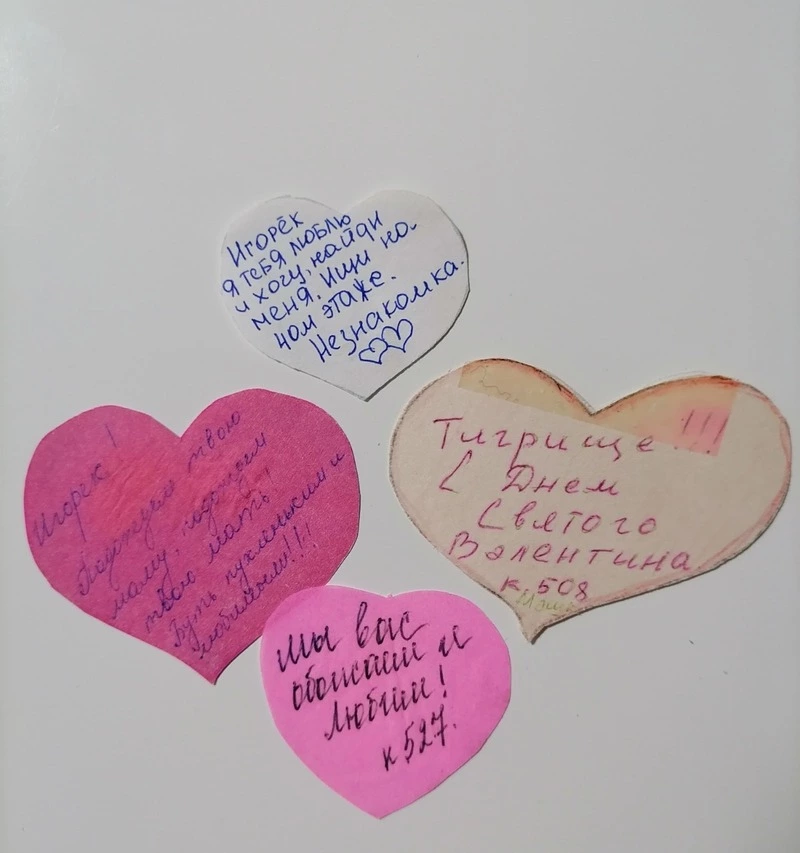 Игорёк
я тебя люблю
и хочу, найди
меня. Ищи на
4ом этаже.
Незнакомка.
Тигрище !!!
С Днем
Святого
Валентина
к. 508
Игорёк!
твою
маму,
твою мать!
Будь пухленьким и
любимым!!!
Мы вас
обожаем и
любим!
к 527.